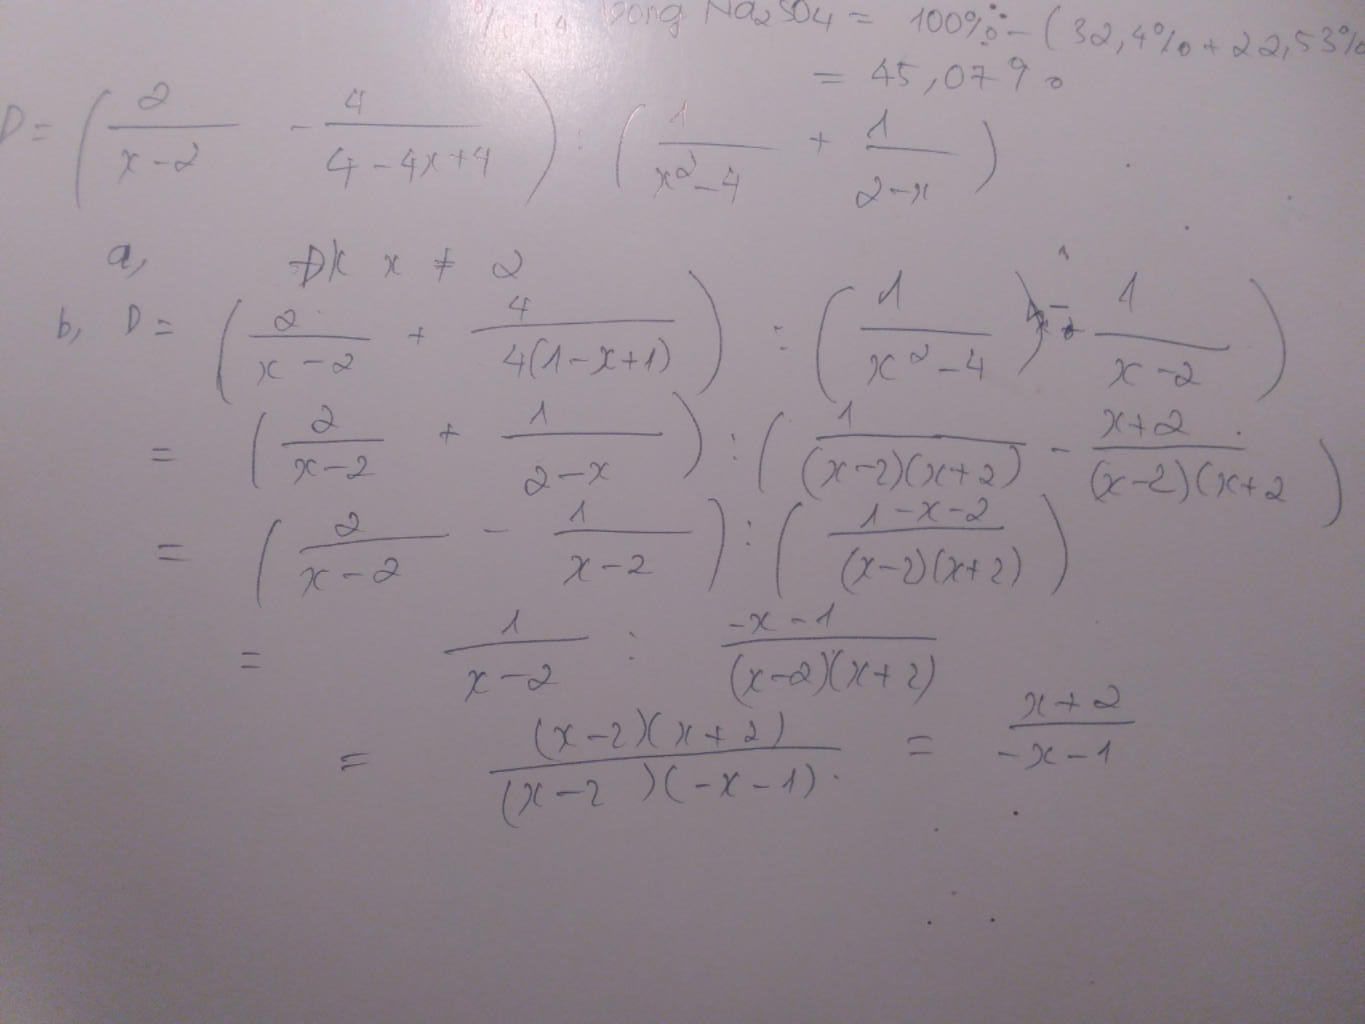 trong Na2SO4 = 100% - (32,4% + 22,53%
= 45,07%
D = ( 2/(x-2) - 4/(4-4x+4) ) : ( 1/(x²-4) + 1/(2-x) )
a, ĐK x ≠ 2
b, D = ( 2/(x-2) + 4/(4(1-x+1)) ) : ( 1/(x²-4) - 1/(x-2) )
= ( 2/(x-2) + 1/(2-x) ) : ( 1/((x-2)(x+2)) - (x+2)/((x-2)(x+2 )
= ( 2/(x-2) - 1/(x-2) ) : ( (1-x-2)/((x-2)(x+2)) )
= 1/(x-2) : (-x-1)/((x-2)(x+2))
= ((x-2)(x+2))/((x-2)(-x-1)) = (x+2)/(-x-1)